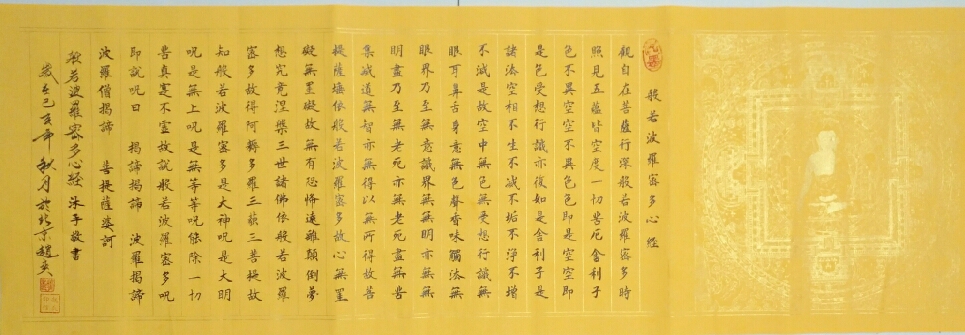 般若波羅蜜多心經
觀自在菩薩行深般若波羅蜜多時
照見五蘊皆空度一切苦厄舍利子
色不異空空不異色色即是空空即
是色受想行識亦復如是舍利子是
諸法空相不生不滅不垢不淨不增
不減是故空中無色無受想行識無
眼耳鼻舌身意無色聲香味觸法無
眼界乃至無意識界無無明亦無無
明盡乃至無老死亦無老死盡無苦
集滅道無智亦無得以無所得故菩
提薩埵依般若波羅蜜多故心無罣
礙無罣礙故無有恐怖遠離顛倒夢
想究竟涅槃三世諸佛依般若波羅
蜜多故得阿耨多羅三藐三菩提故
知般若波羅蜜多是大神呪是大明
呪是無上呪是無等等呪能除一切
苦真實不虛故說般若波羅蜜多呪
即說呪曰 揭諦揭諦 波羅揭諦
波羅僧揭諦 菩提薩婆訶
般若波羅蜜多心經 沐手敬書
歲在己亥年秋月於北京趙